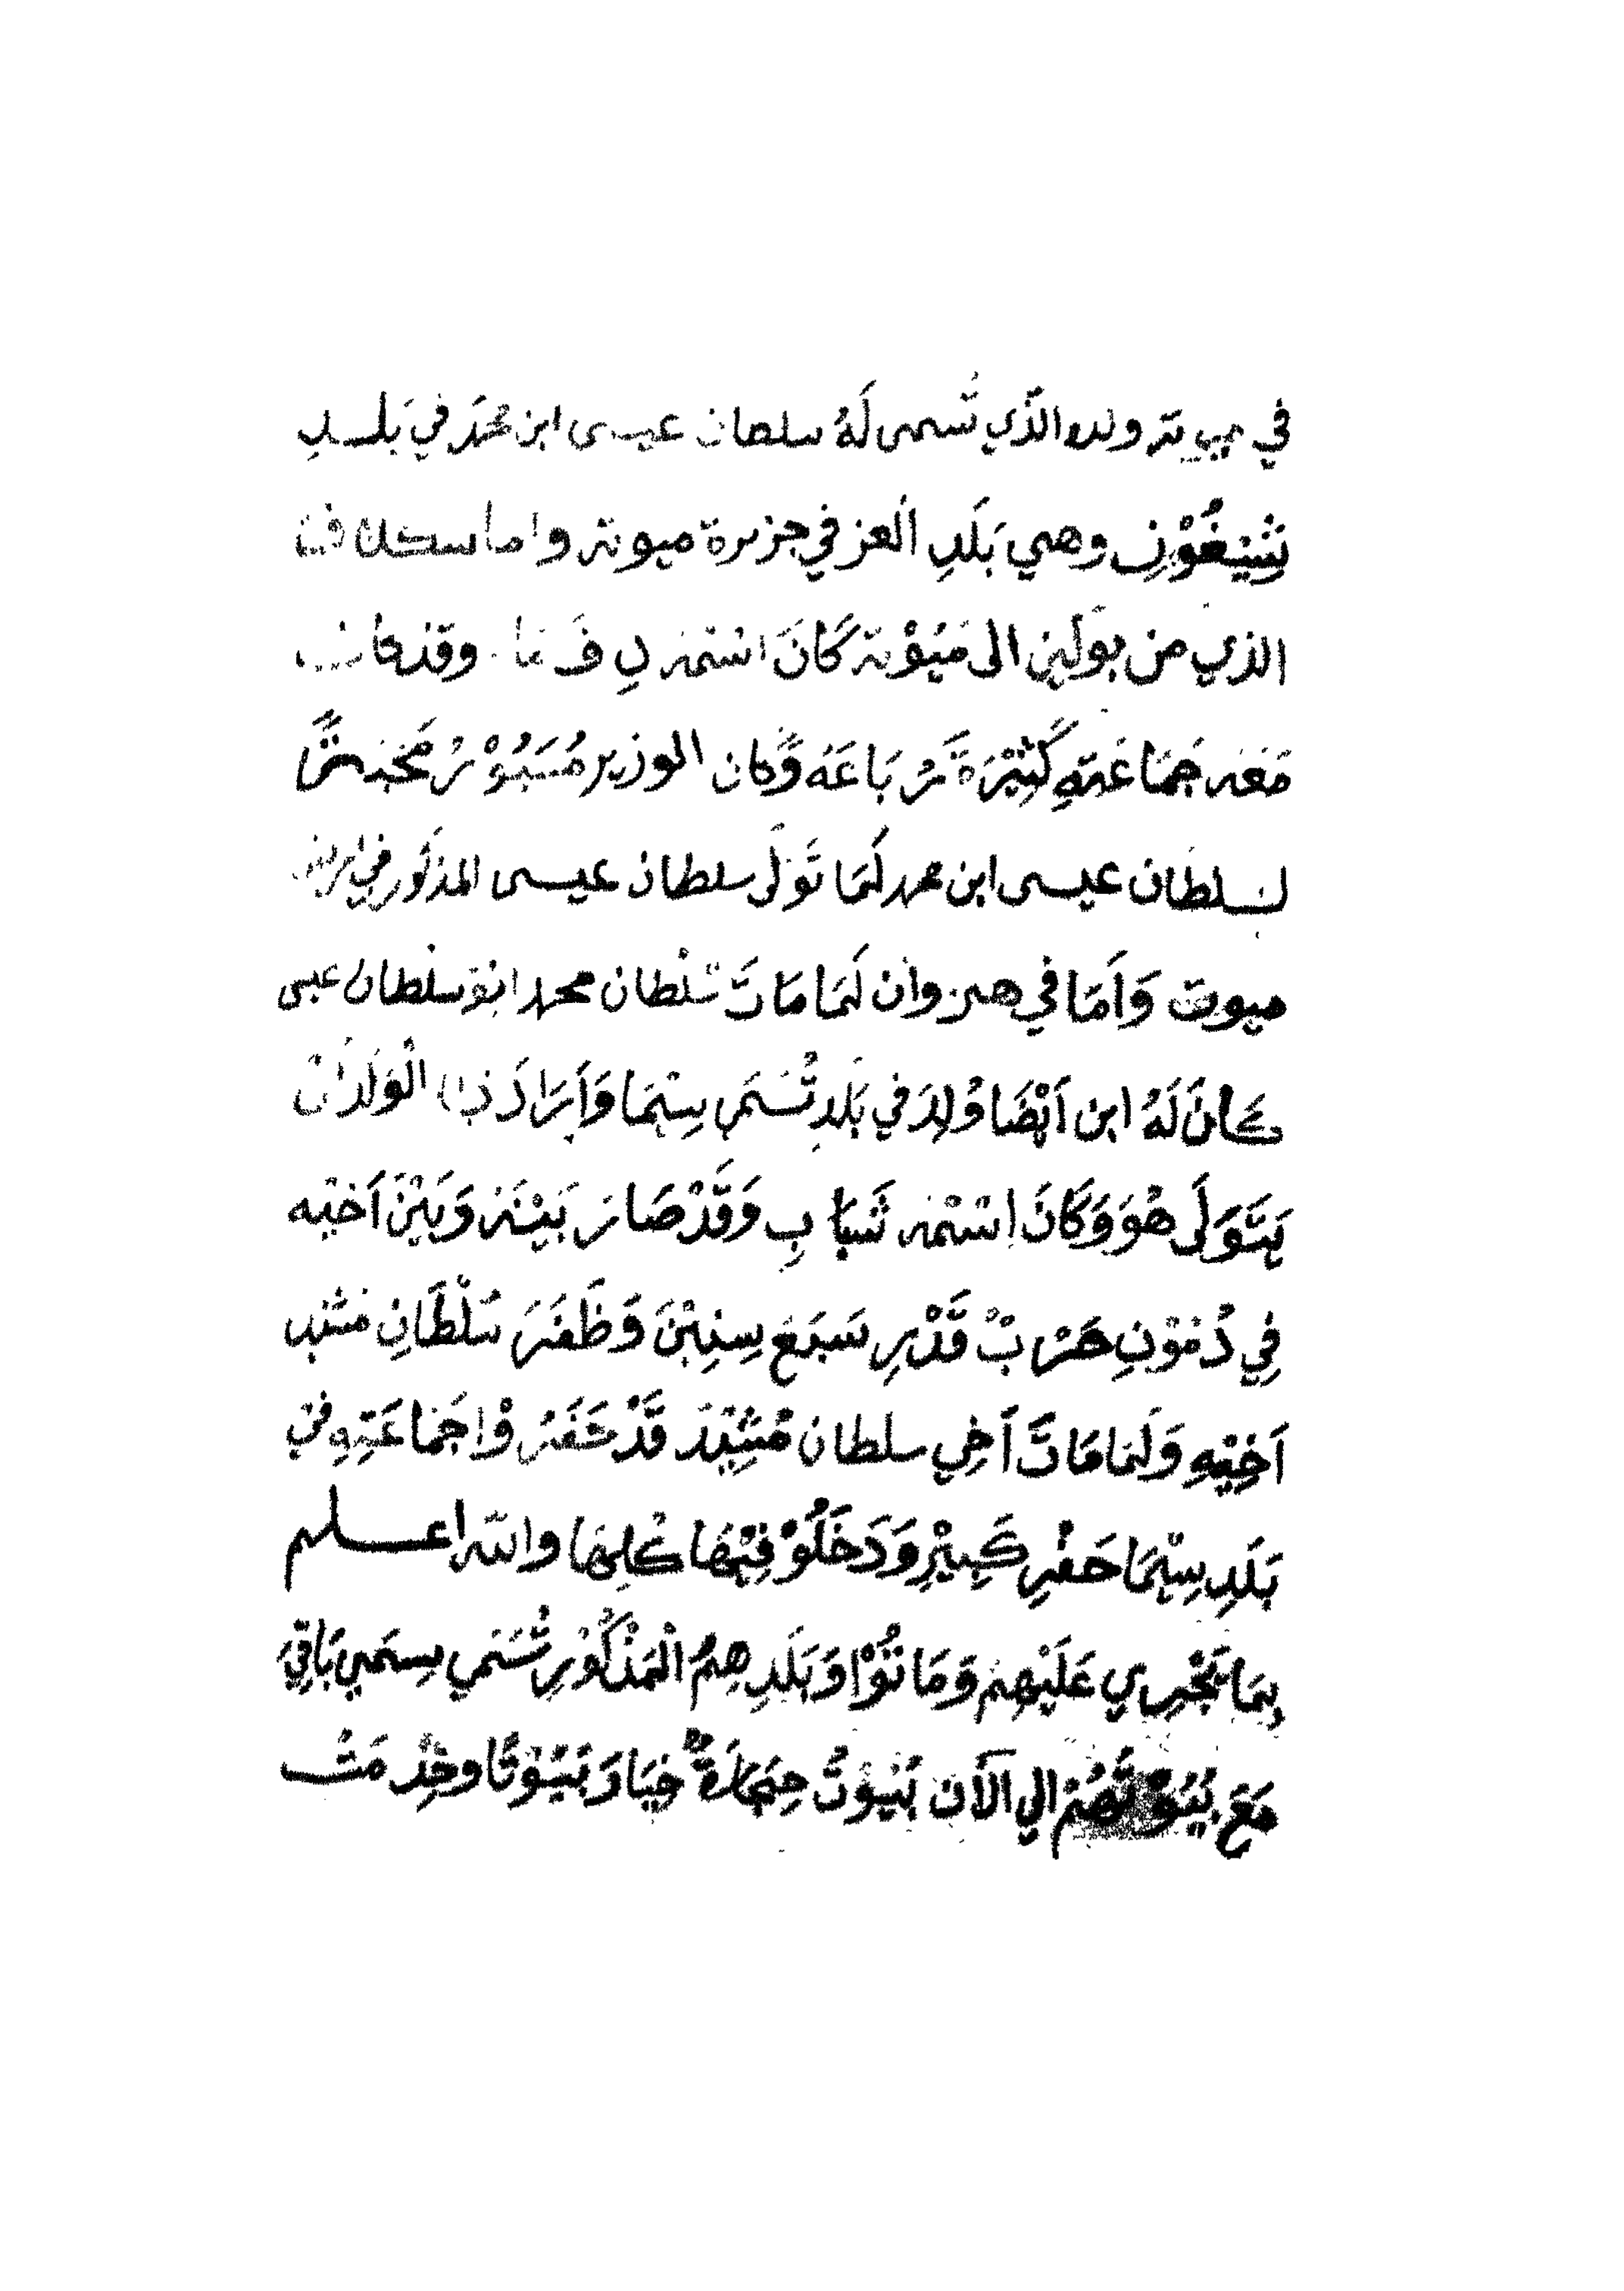 في ميوتة ولده الَّذي تُسمى لَهُ سلطان عيسى ابن محمدَ في بَلَدِ
تْثِينْغُوْنِ وهي بَلَدِ العز في جزيرة ميوتة واما سكلاف
الذي من بوَلَين الى مَيُوْتة كَانَ اسْمُه وقد كان
مَعَه جَمَاعَتِهِ كَثِيْرَةً مُرْبَاعَه وَكان الوزير مُخْبَرًا
لسلطان عيسى ابن محمد لَمَا تَوَلَى سلطان عيسى المذكُور في
ميوت وَاَمَا في هنزوان لَمَا مَاتَ سُلْطان محمد ابو سلْطان عيسى
كَانَ لَهُ ابن اَيْضَا وُلِدَ في بَلَدِ تُسَمَى سِيْمَا وَاَرَادَ ذا الْوَلَدَانْ
يَتَوَلَى هُوَ وَكَانَ اِسْمُه شَبَابِ وَقَدْ صَارَ بَيْنَه وَبَيْنَ اَخيْه
فِي دُمُوْنِ حَرْبْ قَدْرِ سَبَعَ سِنِيْنَ وَظَفَرَ سُلْطَانِ مْثِيْدِ
اَخِيْهِ وَلَمَا مَاتَ اَخِي سلطان مْثِيْدَ قَدْ حَفَرُوْا جَمَاعَتِهِ في
بَلَدِ سِيْمَا حَفْرِ كَبِيْرِ وَدَخَلُوْ فِيْهَا كُلِهَا والله اعلم
بِمَا يَجْرِي عَلَيْهِمْ وَمَاتُوْا وَبَلَدِهِمُ الْمَذْكُوْرِ تُسَمى سِيمَى بَاقِيَ
مَعَ بُيُوْتَهُمْ الي الآن بُيُوْتُ حِجَارَةٌ خِيَارَ بَيُوْتًا وخْدِمَتْ